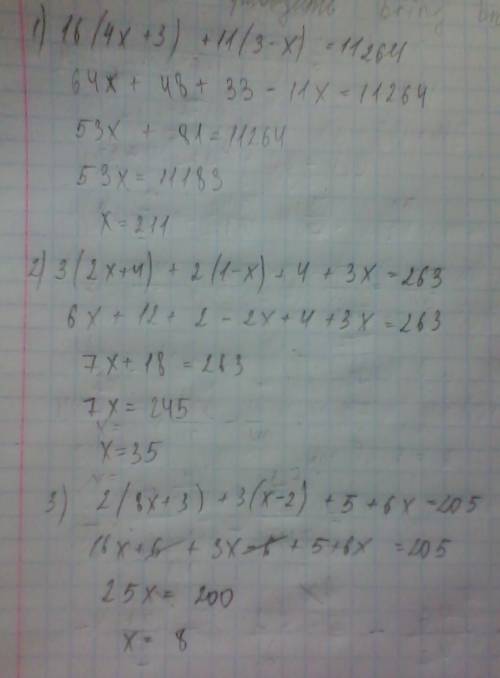 1) 16(4x+3) +11(3-x) =11264
64x + 48 + 33 - 11x = 11264
53x + 81 = 11264
53x = 11183
x = 211
2) 3(2x+4) + 2(1-x) + 4 + 3x = 263
6x + 12 + 2 - 2x + 4 + 3x = 263
7x + 18 = 263
7x = 245
x = 35
3) 2(8x+3) + 3(x-2) + 5 + 6x = 205
16x + 6 + 3x - 6 + 5 + 6x = 205
25x = 200
x = 8